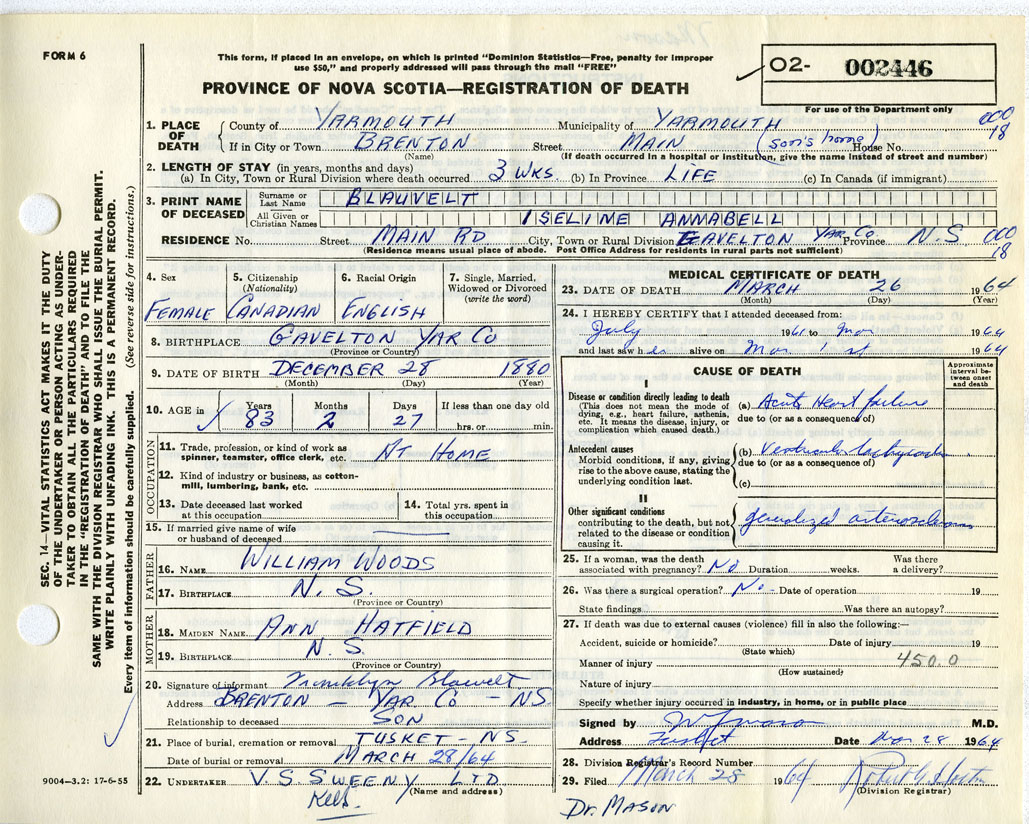 FORM 6
This form, if placed in an envelope, on which is printed "Dominion Statistics—Free, penalty for improper
use $50," and properly addressed will pass through the mail "FREE"
O2- 002446
PROVINCE OF NOVA SCOTIA—REGISTRATION OF DEATH
For use of the Department only
1. PLACE OF DEATH
County of YARMOUTH Municipality of YARMOUTH 000
If in City or Town BRENTON Street MAIN (son's home) House No. 18
(Name) (If death occurred in a hospital or institution, give the name instead of street and number)
2. LENGTH OF STAY (in years, months and days)
(a) In City, Town or Rural Division where death occurred 3 WKS. (b) In Province LIFE (c) In Canada (if immigrant)
3. PRINT NAME OF DECEASED
Surname or Last Name BLAUVELT
All Given or Christian Names ISELINE ANNABELL
RESIDENCE No. Street MAIN RD City, Town or Rural Division GAVELTON YAR CO. Province N.S 000
(Residence means usual place of abode. Post Office Address for residents in rural parts not sufficient) 18
4. Sex FEMALE
5. Citizenship (Nationality) CANADIAN
6. Racial Origin ENGLISH
7. Single, Married, Widowed or Divorced (write the word)
8. BIRTHPLACE GAVELTON YAR CO
(Province or Country)
9. DATE OF BIRTH DECEMBER 28 1880
(Month) (Day) (Year)
10. AGE in Years Months Days If less than one day old
83 2 27 hrs. or min.
OCCUPATION
11. Trade, profession, or kind of work as
spinner, teamster, office clerk, etc. AT HOME
12. Kind of industry or business, as cotton-
mill, lumbering, bank, etc.
13. Date deceased last worked
at this occupation
14. Total yrs. spent in
this occupation
15. If married give name of wife
or husband of deceased
FATHER
16. NAME WILLIAM WOODS
17. BIRTHPLACE N.S.
(Province or Country)
MOTHER
18. MAIDEN NAME ANN HATFIELD
19. BIRTHPLACE N.S.
(Province or Country)
20. Signature of informant Franklyn Blauvelt
Address BRENTON — YAR CO — NS.
Relationship to deceased SON
21. Place of burial, cremation or removal TUSKET - NS.
Date of burial or removal MARCH 28/64
22. UNDERTAKER V.S. SWEENY LTD.
(Name and address)
MEDICAL CERTIFICATE OF DEATH
23. DATE OF DEATH MARCH 26 1964
(Month) (Day) (Year)
24. I HEREBY CERTIFY that I attended deceased from:
July 1961 to Mar 1964
and last saw her alive on Mar 1st 1964
CAUSE OF DEATH
Approximate interval between onset and death
I
Disease or condition directly leading to death
(This does not mean the mode of
dying, e.g., heart failure, asthenia,
etc. It means the disease, injury, or
complication which caused death.)
(a) Acute Heart failure
due to (or as a consequence of)
Antecedent causes
Morbid conditions, if any, giving
rise to the above cause, stating the
underlying condition last.
(b) Ventricular tachycardia
due to (or as a consequence of)
(c)
II
Other significant conditions
contributing to the death, but not
related to the disease or condition
causing it.
generalized arteriosclerosis
25. If a woman, was the death
associated with pregnancy? No Duration weeks. Was there
a delivery?
26. Was there a surgical operation? No Date of operation 19
State findings Was there an autopsy?
27. If death was due to external causes (violence) fill in also the following:—
Accident, suicide or homicide? Date of injury 19
(State which)
Manner of injury 450.0
(How sustained)
Nature of injury
Specify whether injury occurred in industry, in home, or in public place
Signed by M.D.
Address Tusket Date Mar 28 1964
28. Division Registrar's Record Number
29. Filed March 28 1964
(Division Registrar)
Dr. MASON
SEC. 14—VITAL STATISTICS ACT MAKES IT THE DUTY
OF THE UNDERTAKER OR PERSON ACTING AS UNDER-
TAKER TO OBTAIN ALL THE PARTICULARS REQUIRED
IN THE "REGISTRATION OF DEATH" AND TO FILE THE
SAME WITH THE DIVISION REGISTRAR WHO SHALL ISSUE THE BURIAL PERMIT.
WRITE PLAINLY WITH UNFADING INK. THIS IS A PERMANENT RECORD.
Every item of information should be carefully supplied. (See reverse side for instructions.)
9004—3.2: 17-6-55